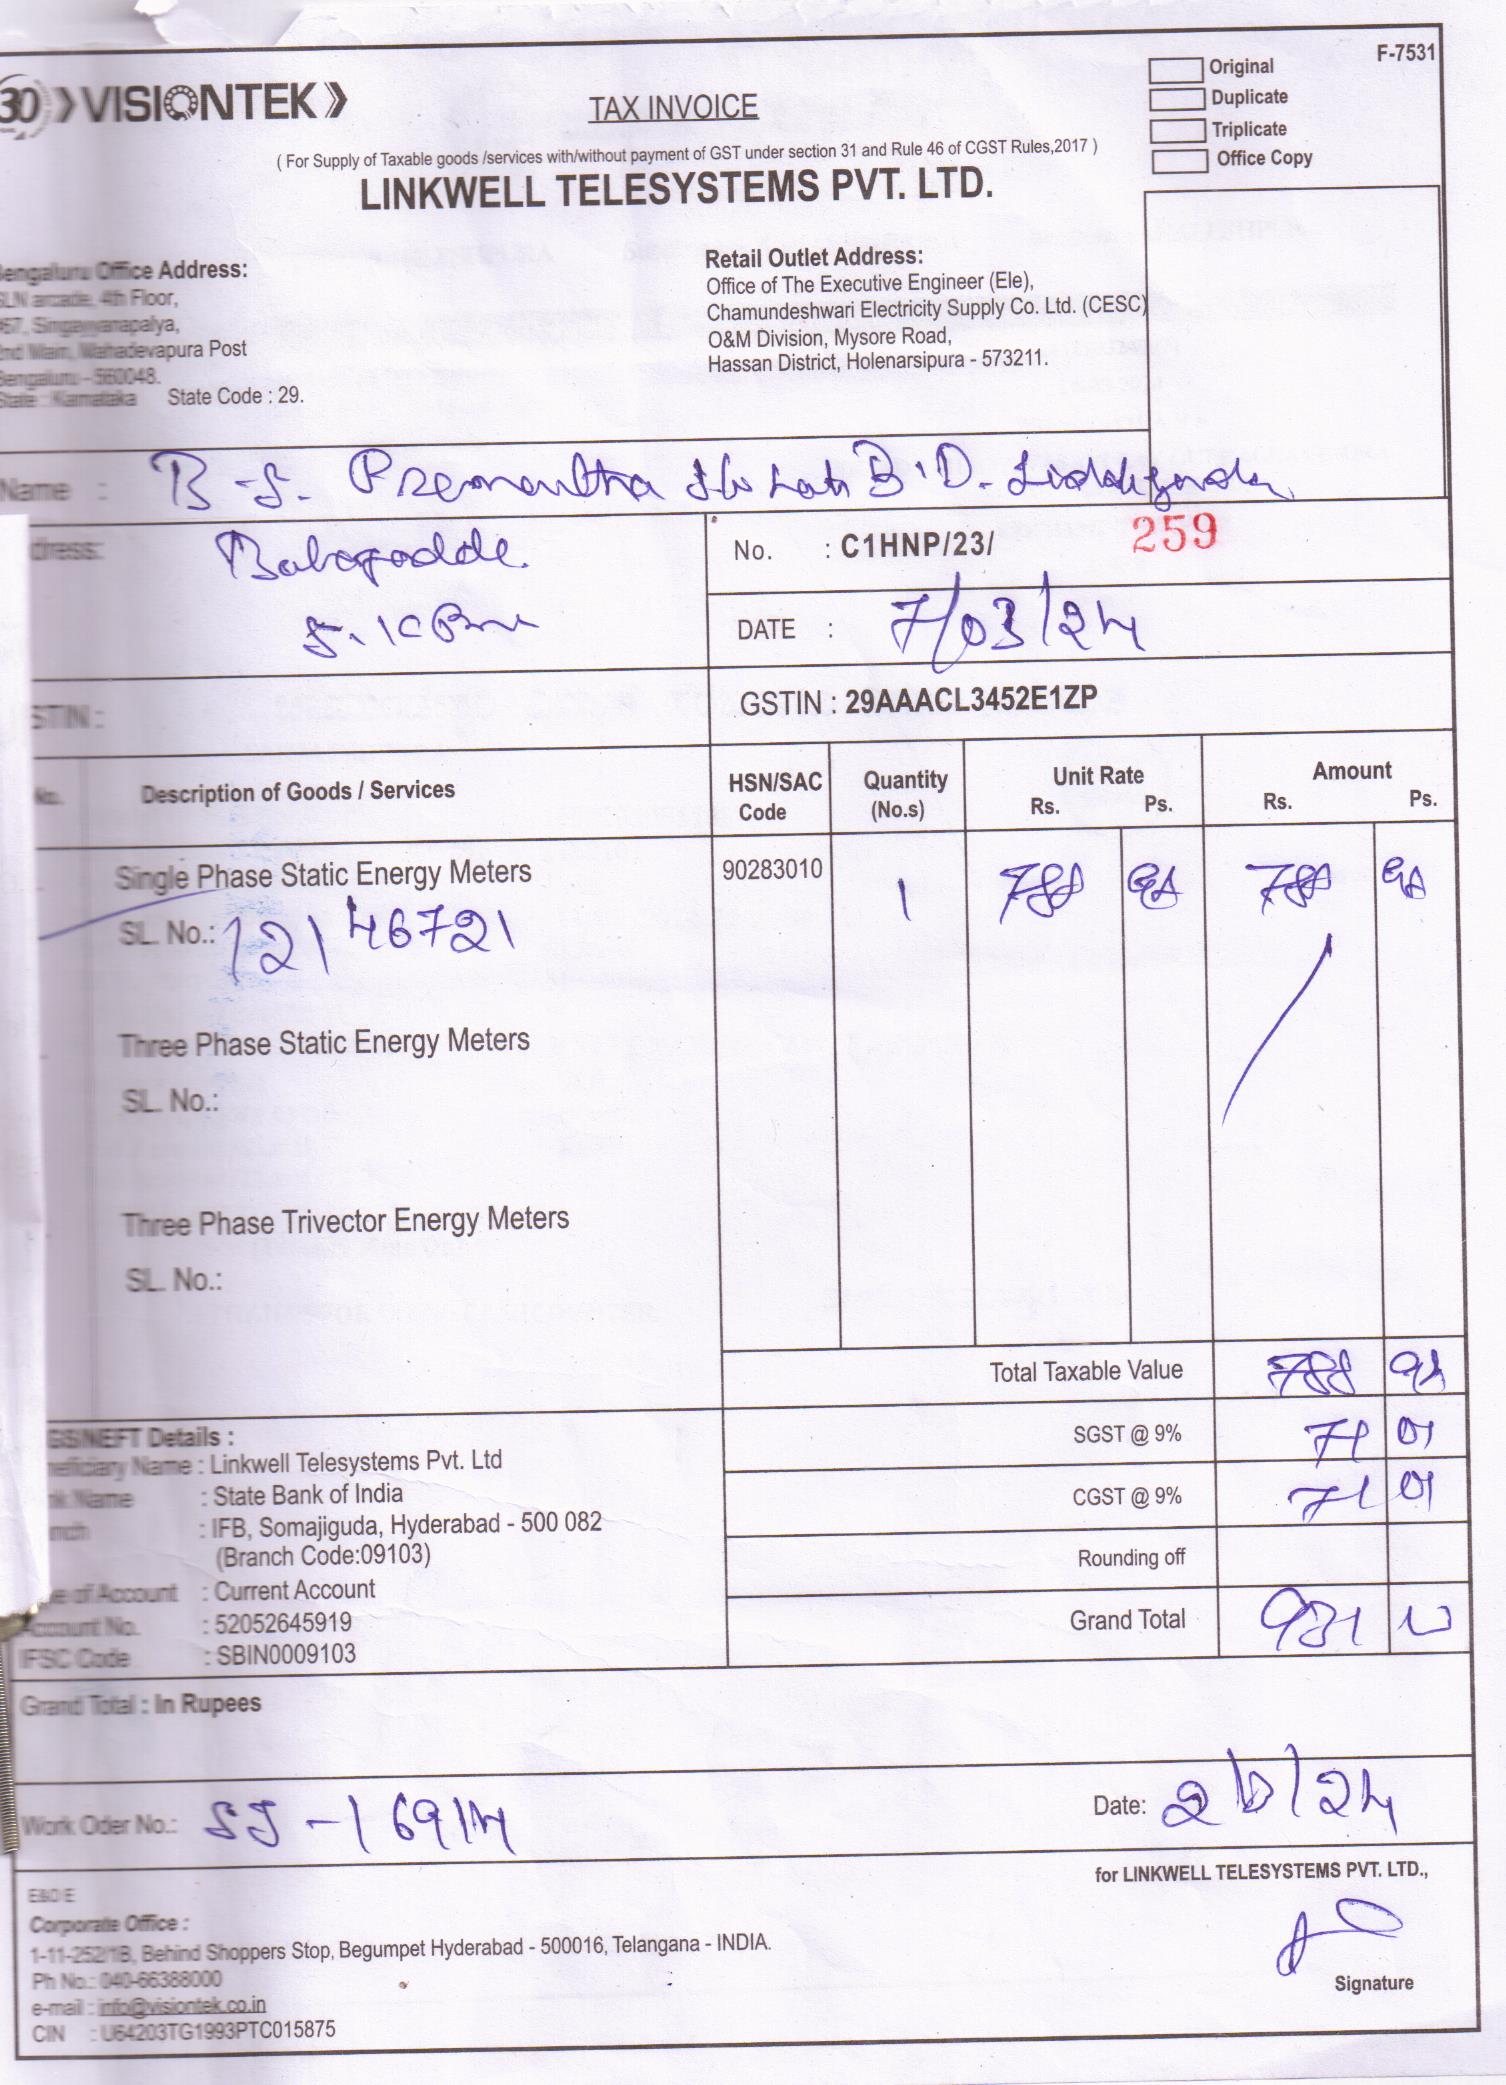 F-7531
Original
Duplicate
Triplicate
Office Copy
30 VISIONTEK
TAX INVOICE
( For Supply of Taxable goods /services with/without payment of GST under section 31 and Rule 46 of CGST Rules,2017 )
LINKWELL TELESYSTEMS PVT. LTD.
Bengaluru Office Address:
SLN arcade, 4th Floor,
#67, Singayyanapalya,
2nd Main, Mahadevapura Post
Bengaluru - 560048.
State : Karnataka State Code : 29.
Retail Outlet Address:
Office of The Executive Engineer (Ele),
Chamundeshwari Electricity Supply Co. Ltd. (CESC)
O&M Division, Mysore Road,
Hassan District, Holenarsipura - 573211.
Name : B.S. Premantha S/o Late B.D.
dress:
No. : C1HNP/23/ 259
DATE : 7/03/24
STIN :
GSTIN : 29AAACL3452E1ZP
No. Description of Goods / Services HSN/SAC Code Quantity (No.s) Unit Rate Rs. Ps. Amount Rs. Ps.
Single Phase Static Energy Meters 90283010 1 788 98 788 98
SL. No.: 12146721
Three Phase Static Energy Meters
SL. No.:
Three Phase Trivector Energy Meters
SL. No.:
Total Taxable Value 788 98
SGST @ 9% 71 01
CGST @ 9% 71 01
Rounding off
Grand Total 931
GS/NEFT Details :
neficiary Name : Linkwell Telesystems Pvt. Ltd
nk Name : State Bank of India
nch : IFB, Somajiguda, Hyderabad - 500 082
(Branch Code:09103)
e of Account : Current Account
Account No. : 52052645919
IFSC Code : SBIN0009103
Grand Total : In Rupees
Work Oder No.: SJ-16914
Date: 2/ /24
for LINKWELL TELESYSTEMS PVT. LTD.,
E&O E
Corporate Office :
1-11-252/1B, Behind Shoppers Stop, Begumpet Hyderabad - 500016, Telangana - INDIA.
Ph No.: 040-66388000
e-mail : info@visiontek.co.in
CIN : U64203TG1993PTC015875
Signature